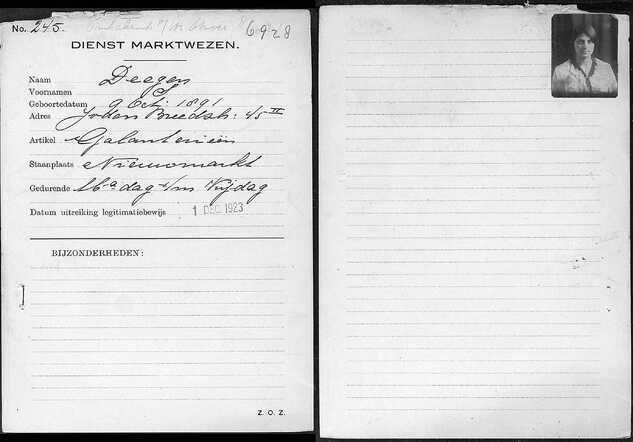 No. 245. 6-9-28
DIENST MARKTWEZEN.
Naam Deegen
Voornamen S
Geboortedatum 9 Oct. 1891
Adres Joden Breedstr: 45 II
Artikel Galanterieën
Staanplaats Nieuwmarkt
Gedurende Maandag t/m Vrijdag
Datum uitreiking legitimatiebewijs 1 DEC 1923
BIJZONDERHEDEN:
Z. O. Z.